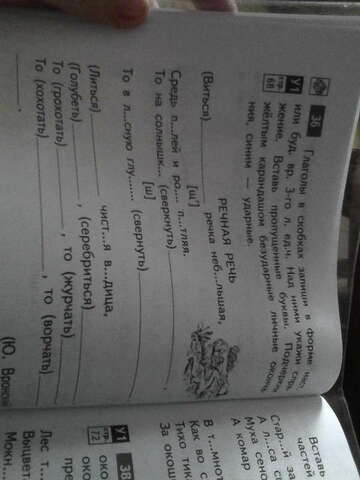 36 Глаголы в скобках запиши в форме наст.
или буд. вр. 3-го л. ед.ч. Над ними укажи спря-
жение. Вставь пропущенные буквы. Подчеркни
жёлтым карандашом безударные личные оконча-
ния, синим — ударные.
У1
стр. 68
РЕЧНАЯ РЕЧЬ
(Виться) речка неб...льшая,
[ш']
Средь п...лей и ро... п...тляя.
То на солнышк... (сверкнуть)
[ш]
То в л...сную глу... (свернуть)
(Литься) чист...я в...дица,
(Голубеть) , (серебриться)
То (грохотать) , то (журчать)
То (хохотать) , то (ворчать)
(Ю.
Вставь
частей
Стар...й за
А л...са
Муха сено
А комар
В т...мнот
Как во с
Тихо тик
За окошк
У1 38
стр. 72
око
пре
око
Лес т...
Выцвет
Мокн...